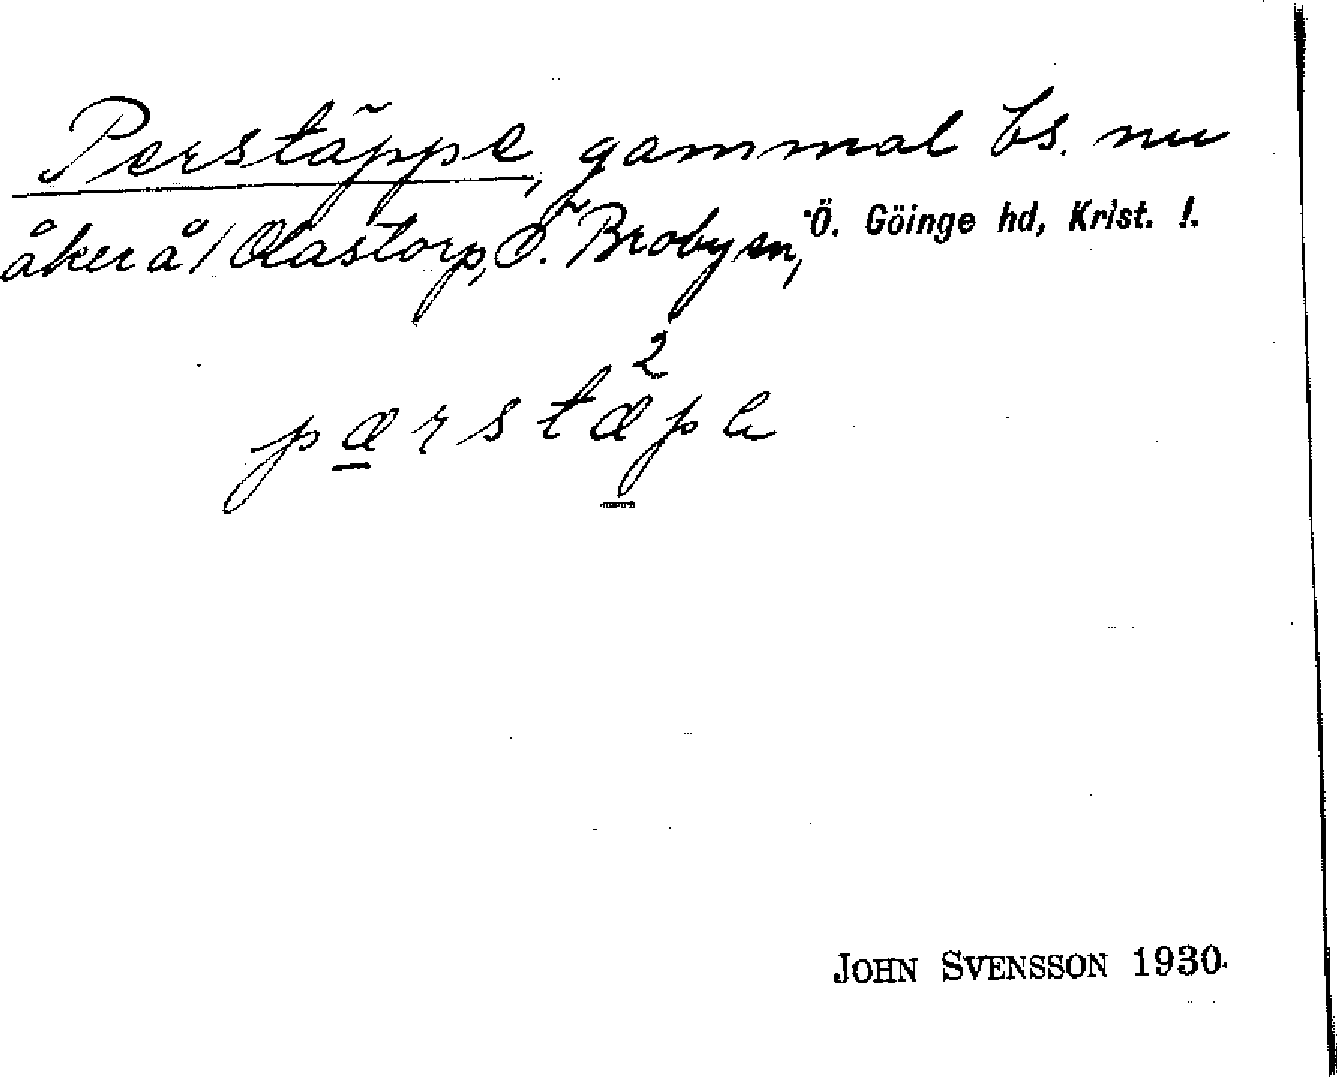 Perstäppe, gammal bs. nu
åker å / Olastorp, Ö. Broby sn, Ö. Göinge hd, Krist. l.
2
pærstæpa
JOHN SVENSSON 1930.